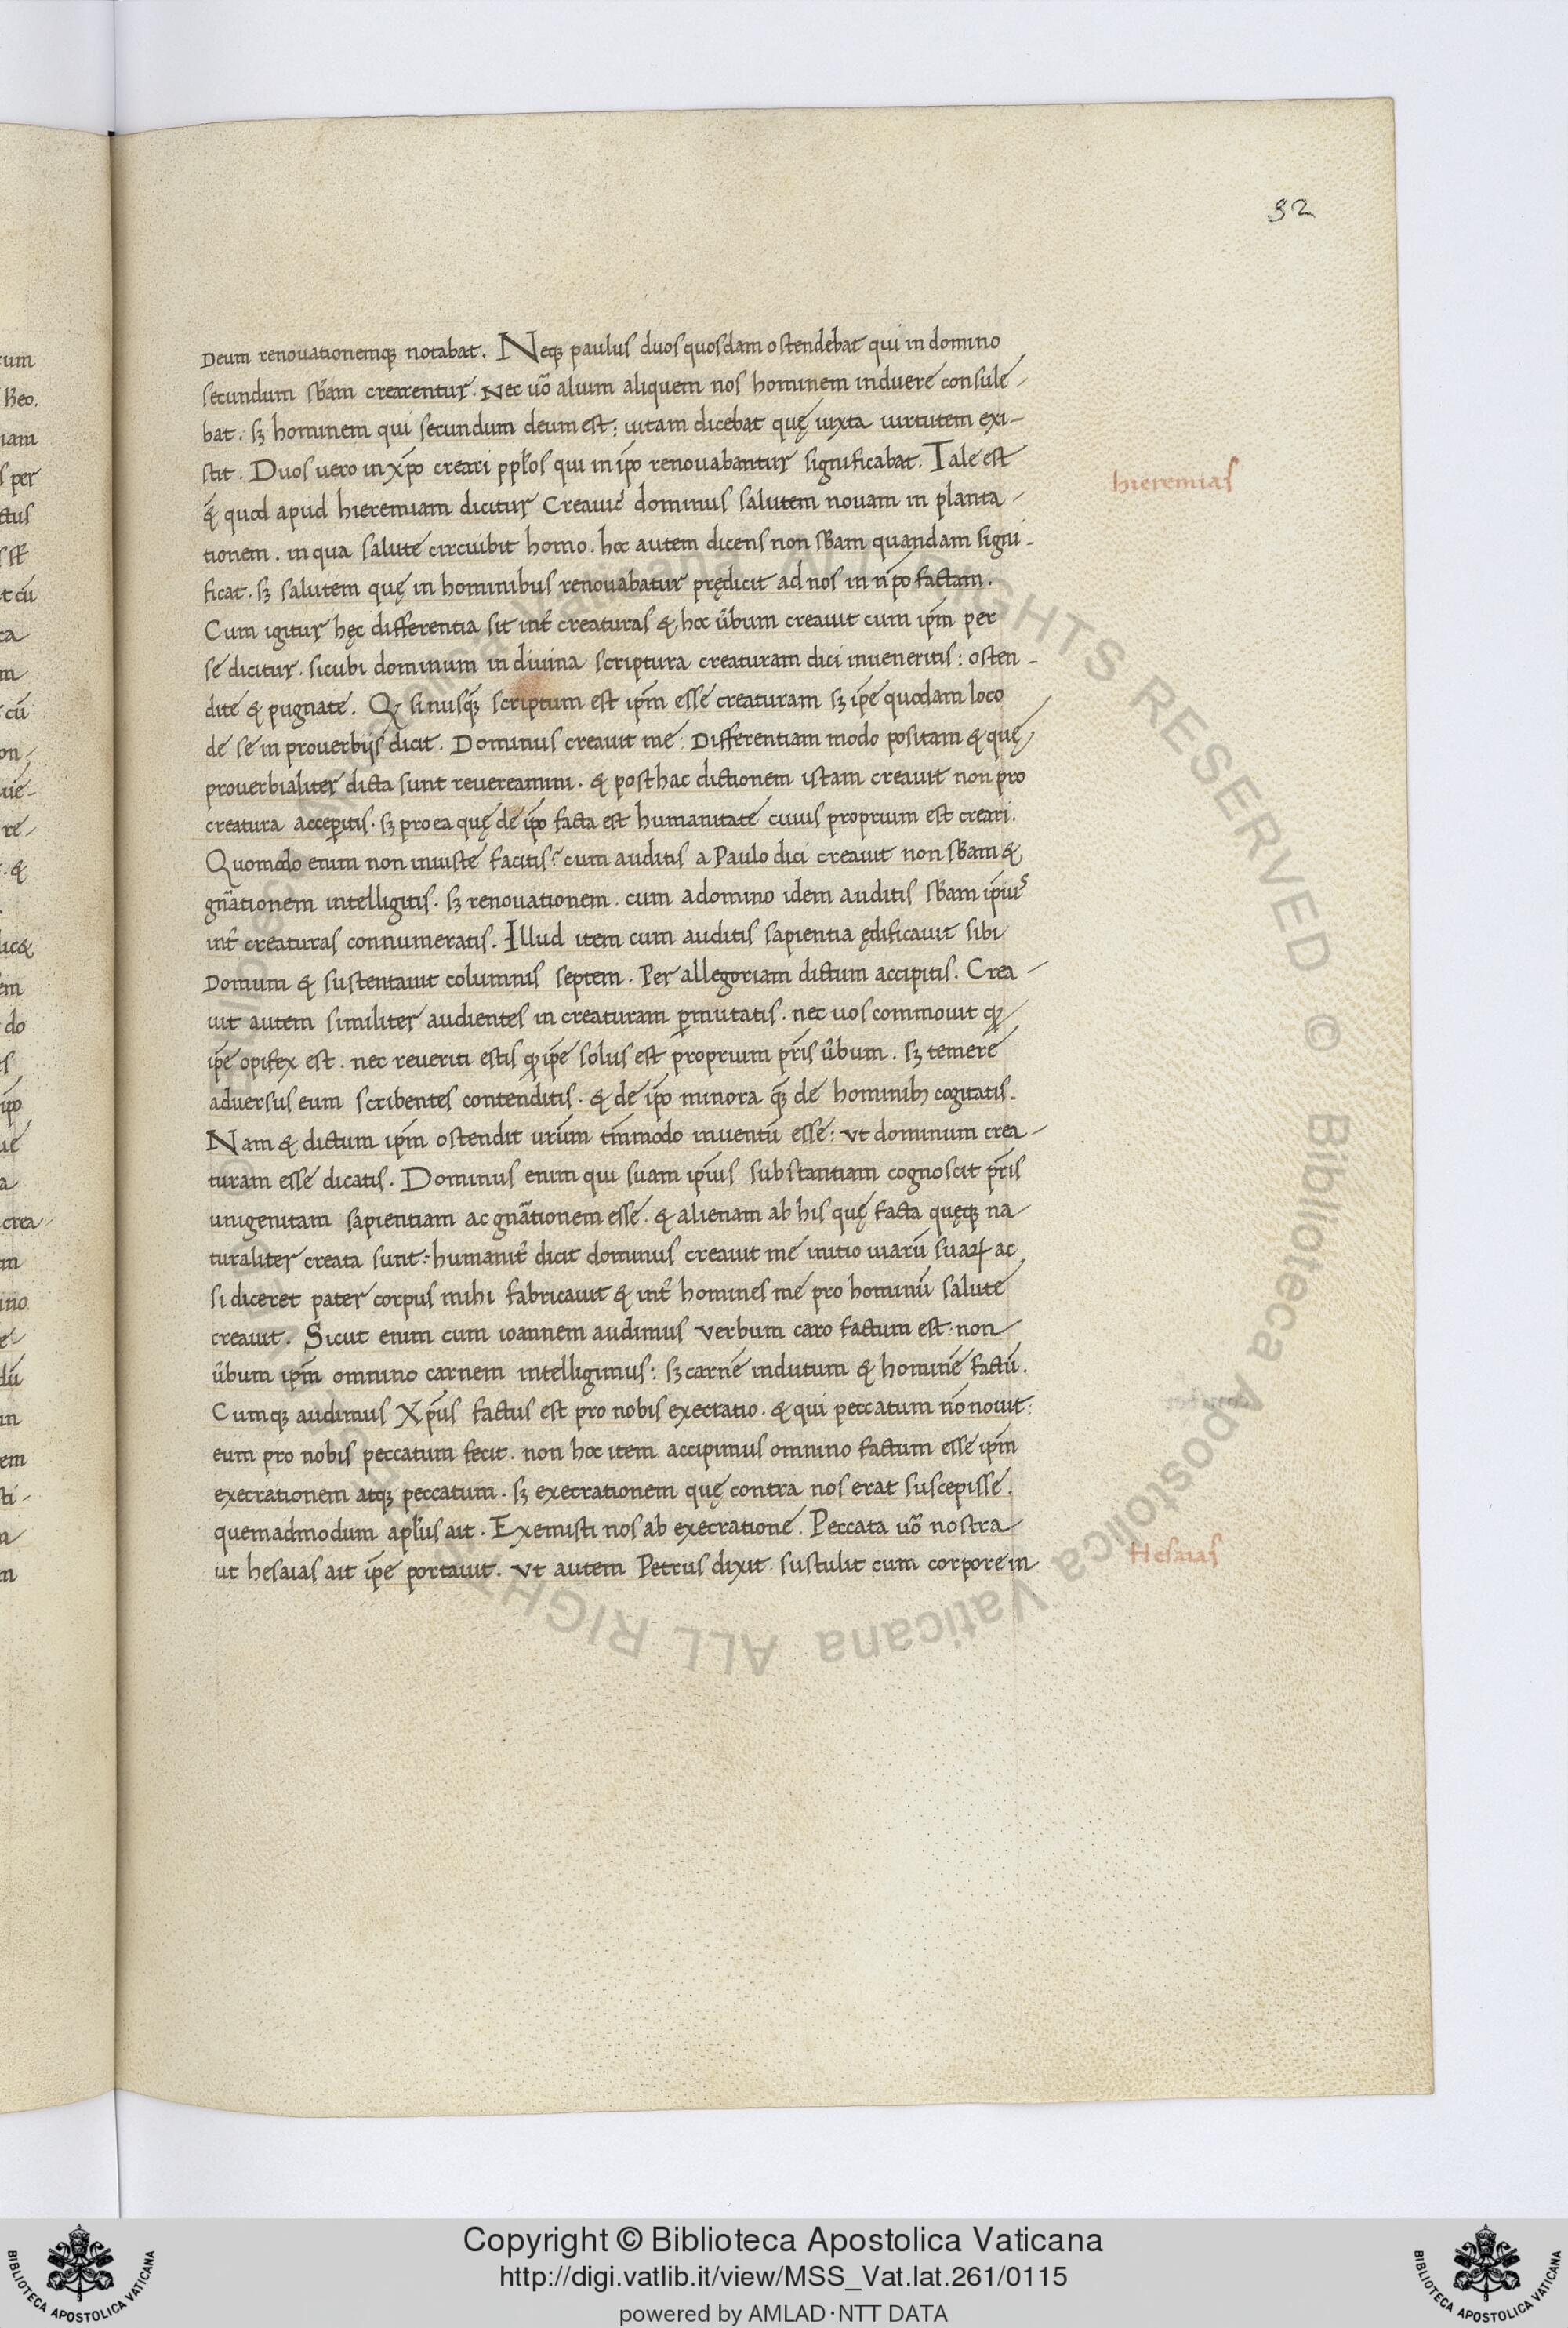 32
Deum renouationemqꝫ notabat. Neqꝫ paulus duos quosdam ostendebat qui in domino
secundum sƀam crearentur. Nec uō alium aliquem nos hominem induere consule-
bat. sꝫ hominem qui secundum deum est: uitam dicebat quę iuxta uirtutem exi-
stit. Duos uero in xp̄o creari ppl̄os qui in ip̄o renouabantur significabat. Tale est
hieremias
& quod apud hieremiam dicitur Creauit dominus salutem nouam in planta-
tionem. in qua salute circuibit homo. hoc autem dicens non sƀam quandam signi-
ficat. sꝫ salutem quę in hominibus renouabatur prędicit ad nos in ip̄o factam.
Cum igitur hęc differentia sit int̄ creaturas & hoc ūbum creauit cum ip̄m per
se dicitur. sicubi dominum in diuina scriptura creaturam dici inueneritis: osten-
dite & pugnate. Qꝫ si nusqꝫ scriptum est ip̄m esse creaturam sꝫ ip̄e quodam loco
de se in prouerbijs dicit. Dominus creauit me: Differentiam modo positam & quę
prouerbialiter dicta sunt reuereamini. & posthac dictionem istam creauit non pro
creatura accepitis. sꝫ pro ea quę de ip̄o facta est humanitate cuius proprium est creari.
Quomodo enim non iniuste facitis? cum auditis a Paulo dici creauit non sƀam &
gn̄ationem intelligitis. sꝫ renouationem. cum a domino idem auditis sƀam ip̄ius
int̄ creaturas connumeratis. Illud item cum auditis sapientia ędificauit sibi
Domum & sustentauit columnis septem. Per allegoriam dictum accipitis. Crea-
uit autem similiter audientes in creaturam ꝑmutatis. nec uos commouit qꝫ
ip̄e opifex est. nec reueriti estis qꝫ ip̄e solus est proprium pr̄is ūbum. sꝫ temere
aduersus eum scribentes contenditis. & de ip̄o minora qꝫ de hominibꝫ cogitatis.
Nam & dictum ip̄m ostendit ur̄um tm̄modo inuentū esse: ut dominum crea-
turam esse dicatis. Dominus enim qui suam ip̄ius substantiam cognoscit pr̄is
unigenitam sapientiam ac gn̄ationem esse. & alienam ab his quę facta quęqꝫ na-
turaliter creata sunt: humanit̄ dicit dominus creauit me initio uiarū suaꝝ ac
si diceret pater corpus mihi fabricauit & int̄ homines me pro hominū salute
creauit. Sicut enim cum ioannem audimus verbum caro factum est: non
ūbum ip̄m omnino carnem intelligimus: sꝫ carnē indutum & hominē factū.
Cumqꝫ audimus Xp̄us factus est pro nobis execratio. & qui peccatum nō nouit:
eum pro nobis peccatum fecit. non hoc item accipimus omnino factum esse ip̄m
execrationem atqꝫ peccatum. sꝫ execrationem quę contra nos erat suscepisse.
quemadmodum apl̄us ait. Exemisti nos ab execratione. Peccata uō nostra
Hesaias
ut hesaias ait ip̄e portauit. vt autem Petrus dixit sustulit cum corpore in
Copyright © Biblioteca Apostolica Vaticana
http://digi.vatlib.it/view/MSS_Vat.lat.261/0115
powered by AMLAD·NTT DATA